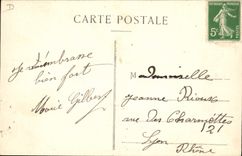 D
CARTE POSTALE
Je t'embrasse
bien fort
Marie Gilbert
M ademoiselle
Jeanne Rioux
rue des Charmettes 21
Lyon
Rhône
5c